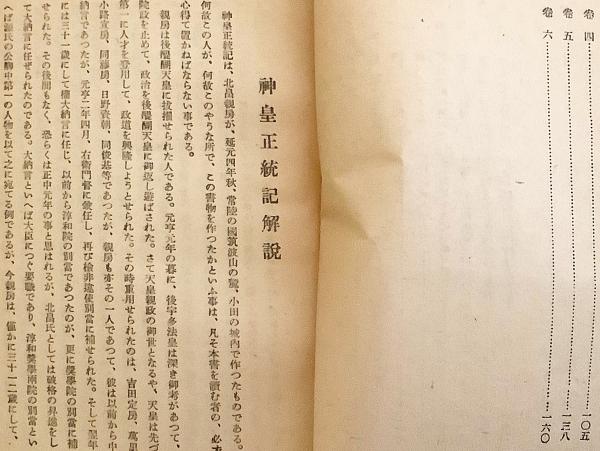 卷四……………………………一〇五
卷五……………………………一三八
卷六……………………………一六〇
神皇正統記解說
神皇正統記は、北畠親房が、延元四年秋、常陸の國筑波山の麓、小田の城內で作つたものである。
何故この人が、何故このやうな所で、この書物を作つたかといふ事は、凡そ本書を讀む者の、必ず
心得て置かねばならない事である。
親房は後醍醐天皇に拔擢せられた人である。元亨元年の暮に、後宇多法皇は深き御考があつて、
院政を止めて、政治を後醍醐天皇に御返し遊ばされた。さて天皇親政の御世となるや、天皇は先づ
第一に人才を登用して、政道を興隆しようとせられた。その時重用せられたのは、吉田定房、萬里
小路宣房、同藤房、日野資朝、同俊基等であつたが、親房も亦その一人であつて、彼は以前から中
納言であつたが、元亨二年四月、右衞門督に兼任し、再び檢非違使別當に補せられた。そして翌年
には三十一歲にして權大納言に任じ、以前から淳和院の別當であつたのが、更に奬學院の別當に補
せられた。その後間もなく、恐らくは正中元年の事と思はれるが、北畠氏としては破格の昇進をし
て大納言に任ぜられたのである。大納言といへば大臣につぐ要職であり、淳和奬學兩院の別當とい
へば源氏の公卿中第一の人物を以て之に宛てる例であるが、今親房は、僅かに三十一二歲にして、